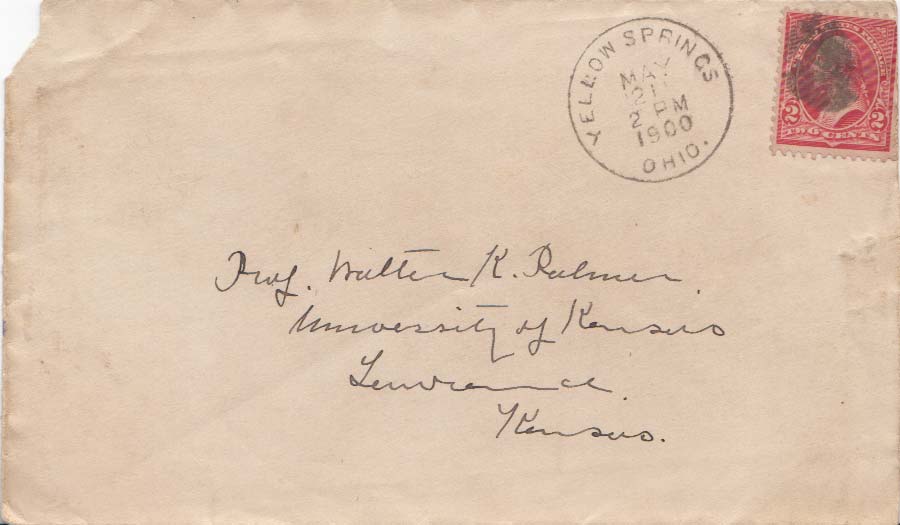 YELLOW SPRINGS
MAY
21
2 PM
1900
OHIO.
2 TWO CENTS 2
Prof. Walter K. Palmer.
University of Kansas
Lawrence
Kansas.